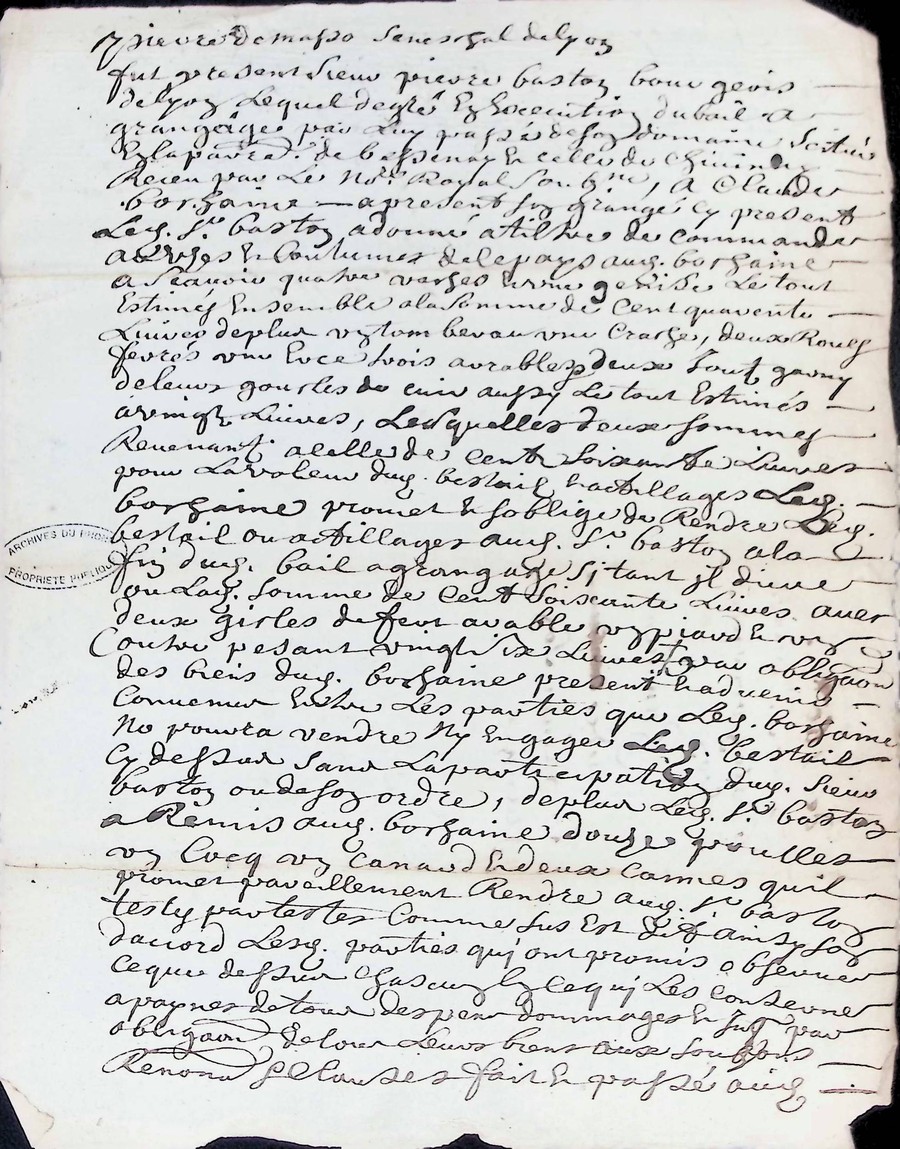 pierre de masso seneschal de lyon
fut present sieur pierre baston bourgeois
de lyon Lequel de gre En Execution du bail a
grangeage par Luy passé de son domaine scitué
En la parre. de bessenay En celle de chivinay
Receu par Le Nore. Royal soubné, A Claude
borhaine apresent son granger cy present
Led. Sr. baston a donné a tiltre de commande
a Es Us Et Coutumes de le pays aud. borhaine
a scavoir quatre vaches Et une genisse Le tout
Estimés Ensemble a la somme de cent quarante
Livres de plus un tombereau une Crache, deux Roues
ferrés une trois arrables deux Jout garny
de leurs de cuir aussy Le tout Estimés
a vingt Livres, Lesquelles deux sommes
Revenant a celle de cent soixante Livres
pour La valeur dud. bestail Et actillages Led.
borhaine promet Et s'oblige de Rendre Led.
bestail ou actillages aud. Sr. baston a la
fin dud. bail a grangeage si tant Il dure
ou Lad. somme de cent soixante Livres avec
deux de fert arable un piard Et un
Coutre pesant vingt six Livres par obligaon
des biens dud. borhaine present Et advenir
Convenu Entre Les parties que Led. borhaine
No pourra vendre Ny Engager Led. bestail
cy dessus sans La participation dud. sieur
baston ou de son ordre, de plus Led. Sr. baston
a Remis aud. borhaine douze poulles
un Cocq un Canard Et deux Cannes quil
promet pareillement Rendre aud. Sr. baston
par testes Comme sus Est dit ainsy son
d'accord Lesd. parties qui ont promis observer
ce que dessus Chascun En ce qui Les conserne
a paynes de tous despens dommages Et par
obligaon de tous Leurs biens aux
Renonce. Et Clauses fait Et passé aud.
ARCHIVES DU
PROPRIETE PUBLIQUE